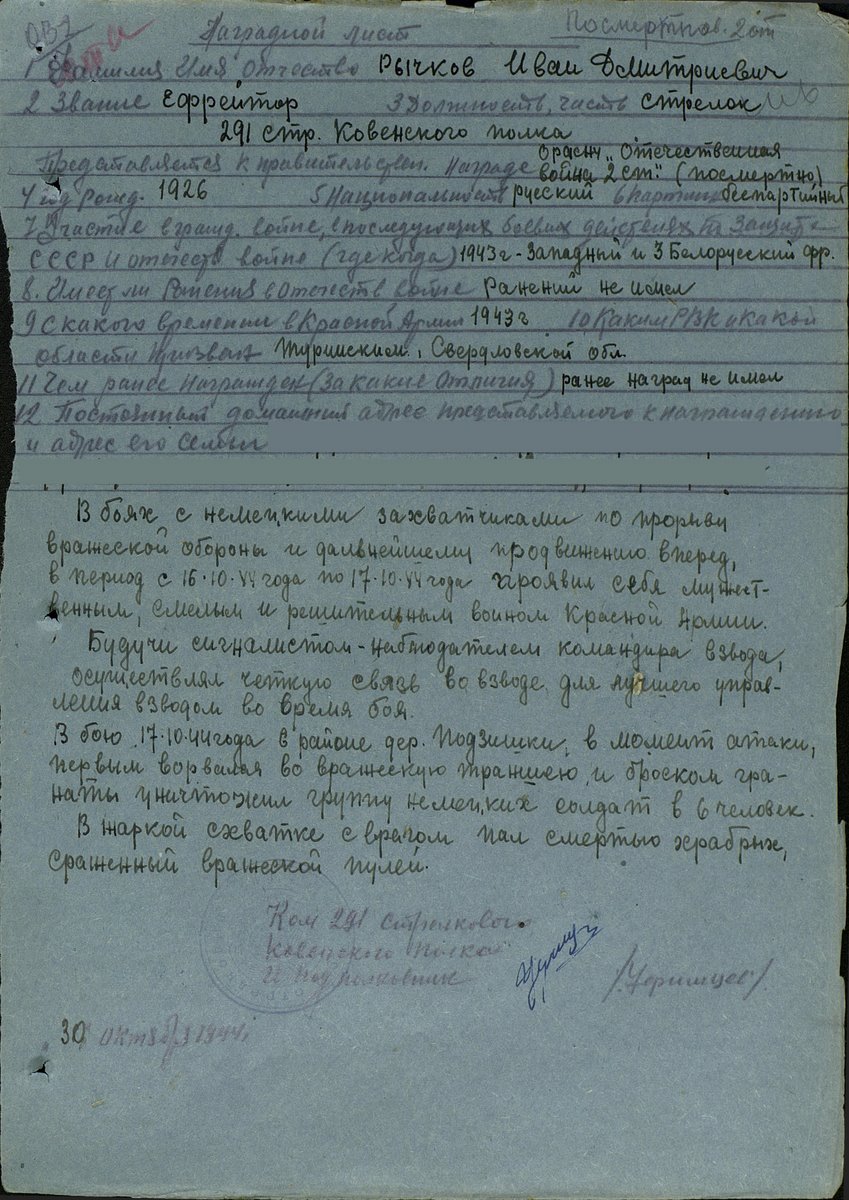 ОВ2
Наградной лист Посмертно. 2 ст
1 Фамилия Имя Отчество Рычков Иван Дмитриевич
2 Звание Ефрейтор 3 Должность, часть стрелок
291 стр. Ковенского полка
Представляется к правительствен. Награде орден „Отечественная война 2 ст" (посмертно)
4 год рожд. 1926 5 Национальность русский 6 Партийн беспартийный
7 Участие в гражд. войне, в последующих боевых действиях по защите
СССР и отечеств войне (где когда) 1943г - Западный и 3 Белорусский фр.
8. Имеет ли Ранения в Отечеств войне Ранений не имел
9 С какого времени в Красной Армии 1943г 10 Каким РВК и какой
области призван Туринским, Свердловской обл.
11 Чем ранее Награжден (За какие Отличия) ранее наград не имел
12 Постоянный домашний адрес представляемого к награждению
и адрес его семьи
В боях с немецкими захватчиками по прорыву
вражеской обороны и дальнейшему продвижению вперед,
в период с 16.10.44 года по 17.10.44 года проявил себя мужест-
венным, смелым и решительным воином Красной Армии.
Будучи сигналистом-наблюдателем командира взвода,
осуществлял четкую связь во взводе для лучшего управ-
ления взводом во время боя.
В бою 17.10.44 года в районе дер. Подзишки, в момент атаки,
первым ворвался во вражескую траншею и броском гра-
наты уничтожил группу немецких солдат в 6 человек.
В жаркой схватке с врагом пал смертью храбрых,
сраженный вражеской пулей.
Ком 291 стрелкового
Ковенского полка
Подполковник
30 октября 1944г.